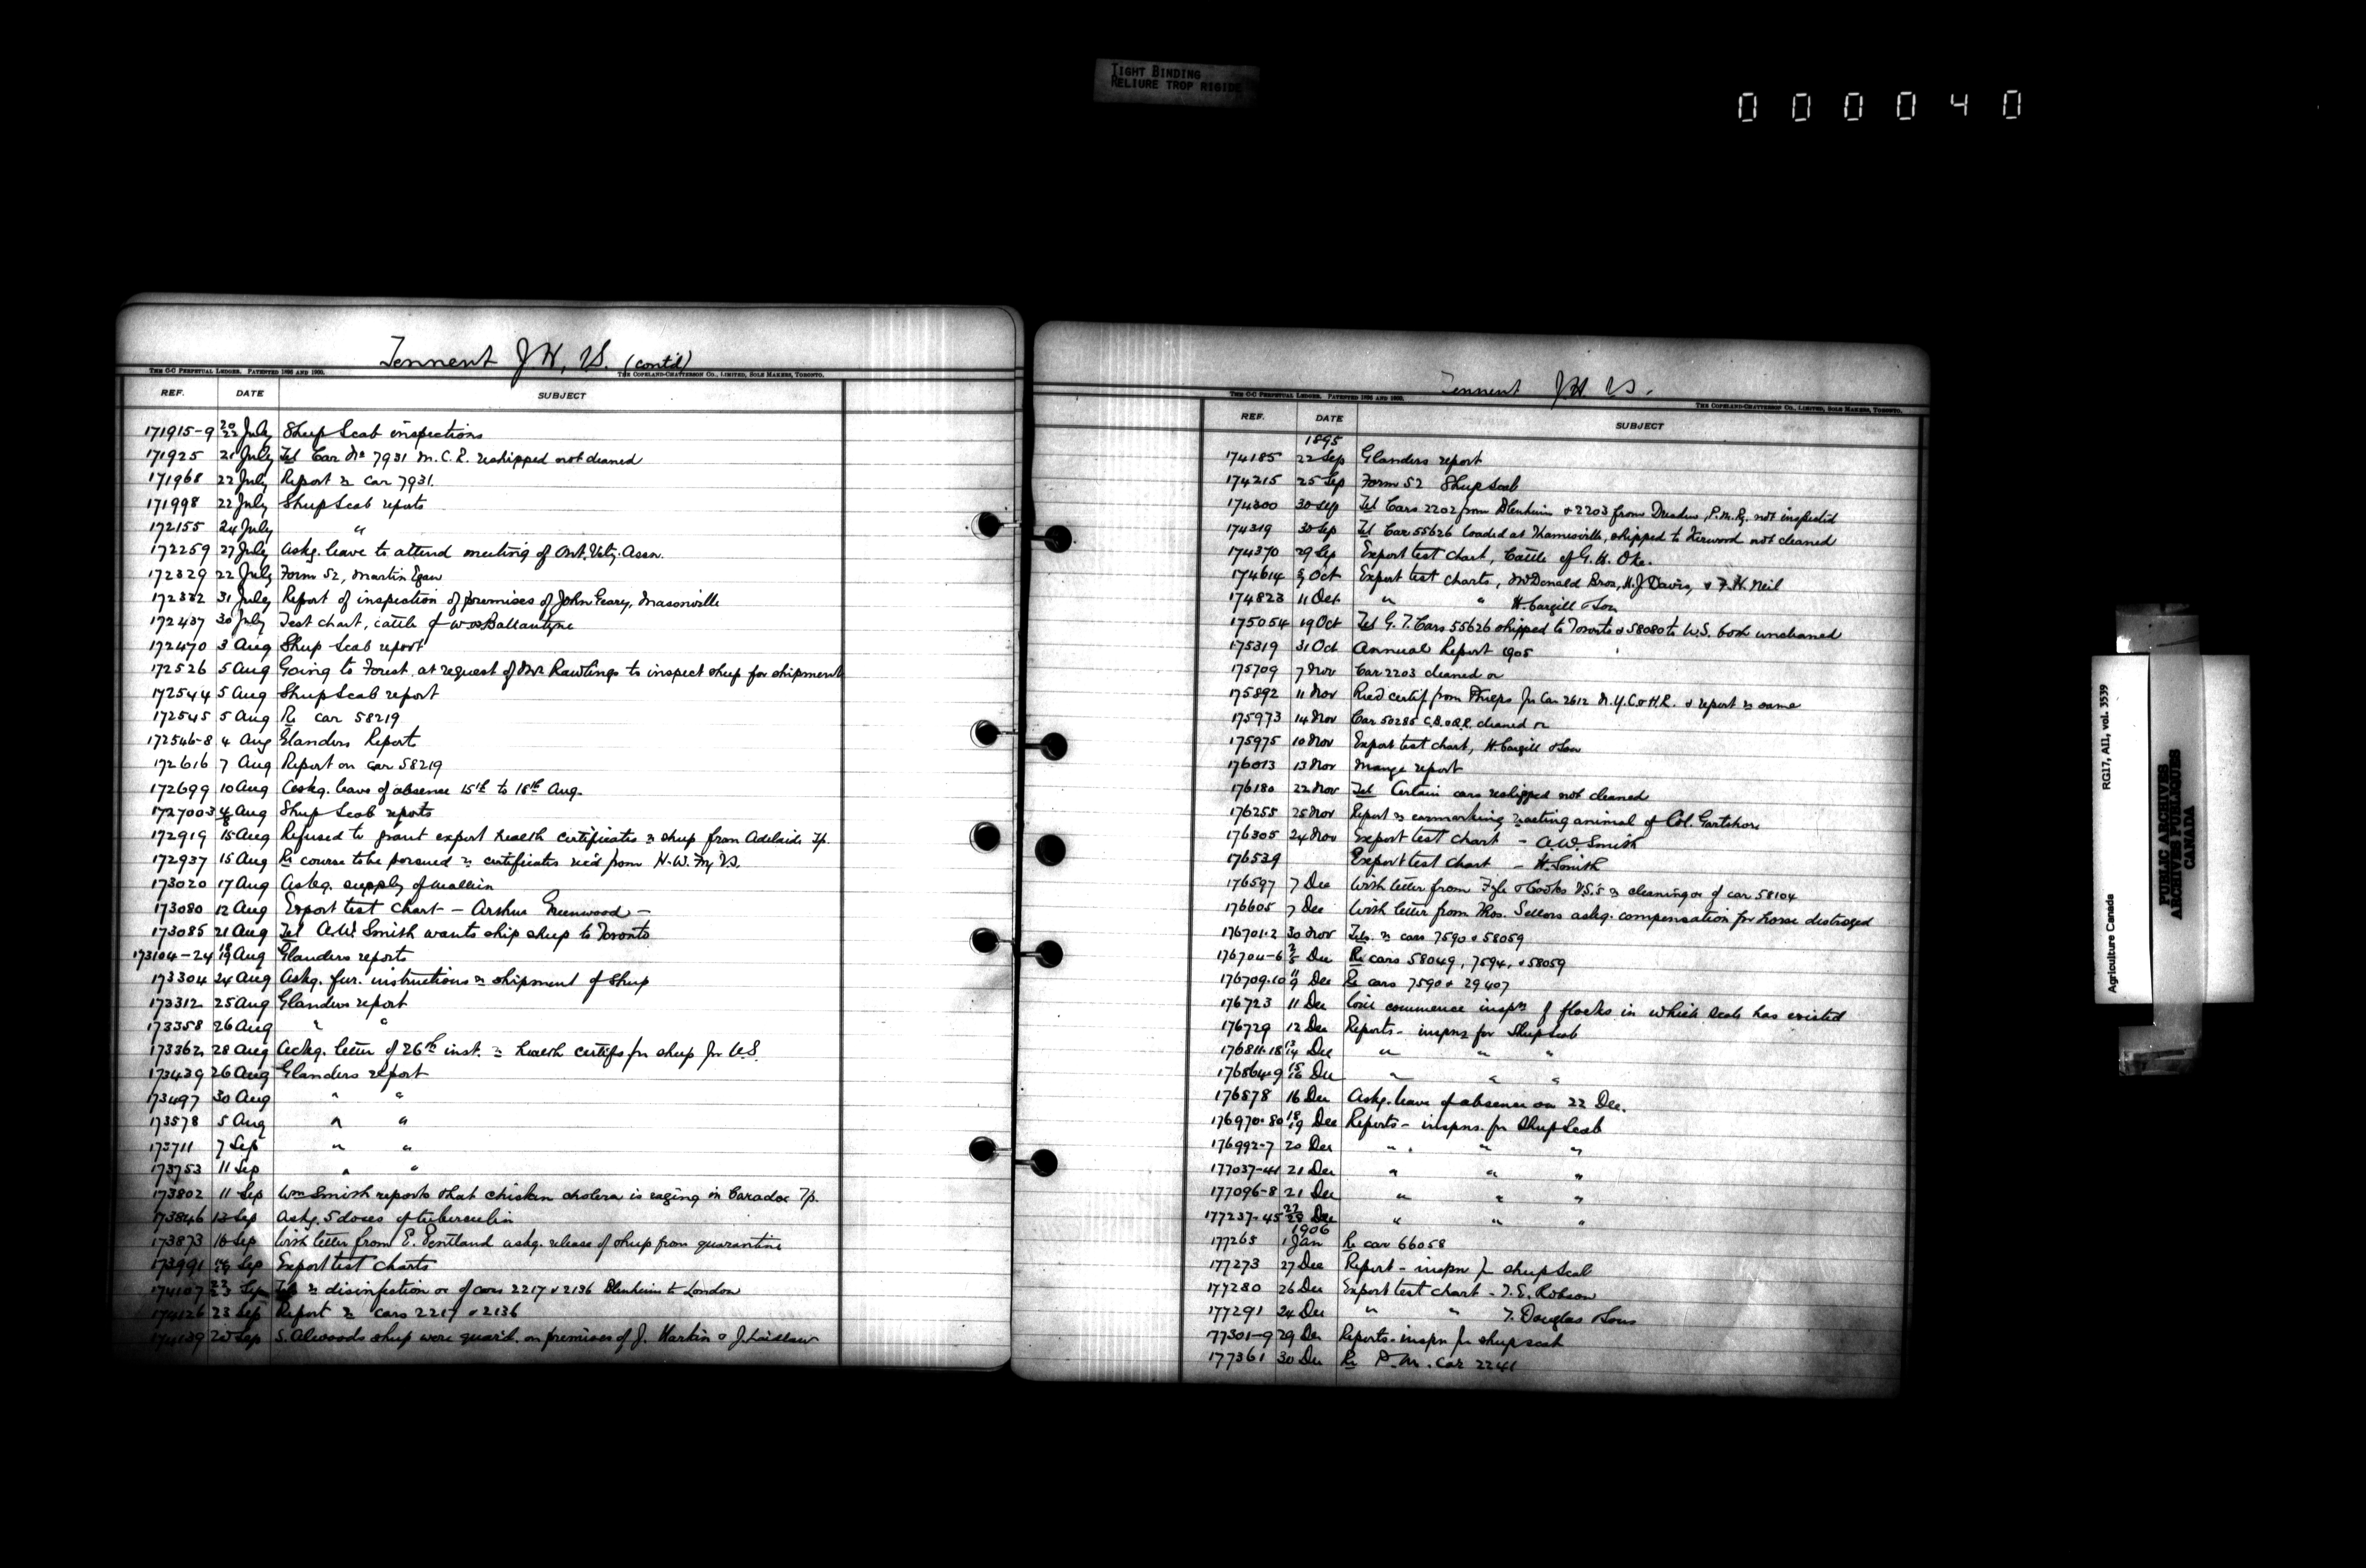 TIGHT BINDING
RELIURE TROP RIGIDE
000040
Tennent J H, V.S. (contd)
THE C-C PERPETUAL LEDGER. PATENTED 1896 AND 1900. THE COPELAND-CHATTERSON CO., LIMITED, SOLE MAKERS, TORONTO.
REF. DATE SUBJECT
171915-9 20/22 July Sheep Scab inspections
171925 21 July Tel Car No 7931 M.C.R. reshipped not cleaned
171968 22 July Report re car 7931.
171998 22 July Sheep Scab reports
172155 24 July "
172259 27 July Askg. leave to attend meeting of Ont. Vety. Assn.
172329 22 July Form 52, Martin Egan
172332 31 July Report of inspection of premises of John Geary, Masonville
172437 30 July Test chart, cattle of W. Ballantyne
172470 3 Aug Sheep Scab report
172526 5 Aug Going to Forest at request of Mr Rawlings to inspect sheep for shipment
172544 5 Aug Sheep Scab report
172545 5 Aug Re car 58219
172546-8 4 Aug Glanders Report
172616 7 Aug Report on car 58219
172699 10 Aug Askg. leave of absence 15th to 18th Aug.
172700-3 4/8 Aug Sheep Scab reports
172919 15 Aug Refused to grant export health certificates re sheep from Adelaide Tp.
172937 15 Aug Re course to be pursued re certificates rec'd from N.W. VS.
173020 17 Aug Askg. supply of mallein
173080 12 Aug Export test chart - Arthur Greenwood -
173085 21 Aug Tel A.W. Smith wants ship sheep to Toronto
173104-24 18/19 Aug Glanders reports
173304 24 Aug Askg. fur. instructions re shipment of sheep
173312 25 Aug Glanders report
173358 26 Aug " "
173362 28 Aug Ackg. letter of 26th inst. re health certifs for sheep for U.S.
173439 26 Aug Glanders report
173497 30 Aug " "
173578 5 Aug " "
173711 7 Sep " "
173753 11 Sep " "
173802 11 Sep Wm Smith reports that chicken cholera is raging in Caradoc Tp.
173846 13 Sep Askg. 5 doses of tuberculin
173873 16 Sep With letter from E. Pentland askg. release of sheep from quarantine
173991 Sep Export test charts
174107 23 Sep re disinfection or of cars 2217 & 2136 Blenheim to London
174126 23 Sep Report re cars 2217 & 2136
174139 Sep S. Alwoods sheep were quar'd. on premises of J. Harkin & J. Laidlaw
Tennent J H. V.S.
THE C-C PERPETUAL LEDGER. PATENTED 1896 AND 1900. THE COPELAND-CHATTERSON CO., LIMITED, SOLE MAKERS, TORONTO.
REF. DATE SUBJECT
1895
174185 22 Sep Glanders report
174215 25 Sep Form 52 Sheep Scab
174300 30 Sep Tel Cars 2202 from Blenheim & 2203 from Dresden, P.M.Ry. not inspected
174319 30 Sep Tel Car 55626 loaded at Thamesville, shipped to Kerwood not cleaned
174370 29 Sep Export test chart, Cattle of G.H. Oke.
174614 5/7 Oct Export test charts, McDonald Bros, H.J. Davis, & F.H. Neil
174823 11 Oct " " H. Cargill & Son
175054 19 Oct Tel G.T. Cars 55626 shipped to Toronto & 58080 to W.S. both uncleaned
175319 31 Oct Annual Report 1905
175709 7 Nov Car 2203 cleaned or
175892 11 Nov Recd certif from Phelps for Car 2612 N.Y.C.&H.R. & report re same
175973 14 Nov Car 50285 C.B.&Q.R. cleaned or
175975 10 Nov Export test chart, H. Cargill & Son
176013 13 Nov Mange report
176180 22 Nov Tel Certain cars reshipped not cleaned
176255 25 Nov Report re earmarking reacting animal of Col. Gartshore
176305 24 Nov Export test chart - A.W. Smith
176539 Export test chart - H. Smith
176597 7 Dec With letter from Fyle & Cooks V.S.'s re cleaning or of car 58104
176605 7 Dec With letter from Thos. Sellors askg. compensation for horse destroyed
176701-2 30 Nov Tels. re cars 7590 & 58059
176704-6 2/5 Dec Re cars 58049, 7594, & 58059
176709-10 11/9 Dec Re cars 7590 & 29407
176723 11 Dec Will commence inspn of flocks in which scab has existed
176729 12 Dec Reports - inspns for Sheep Scab
176811-18 13/14 Dec " " "
176864-9 15/16 Dec " " "
176878 16 Dec Askg. leave of absence on 22 Dec.
176970-80 18/19 Dec Reports - inspns. for Sheep Scab
176992-7 20 Dec " " "
177037-41 21 Dec " " "
177096-8 21 Dec " " "
177237-45 Dec " " "
1906
177265 1 Jan Re car 66058
177273 27 Dec Report - inspn for sheep Scab
177280 26 Dec Export test chart - T.E. Robson
177291 24 Dec " " T. Douglas & Sons
77301-9 29 Dec Reports - inspn for sheep scab
177361 30 Dec Re P.M. car 2241
Agriculture Canada RG17, AII, vol. 3539
PUBLIC ARCHIVES
ARCHIVES PUBLIQUES
CANADA